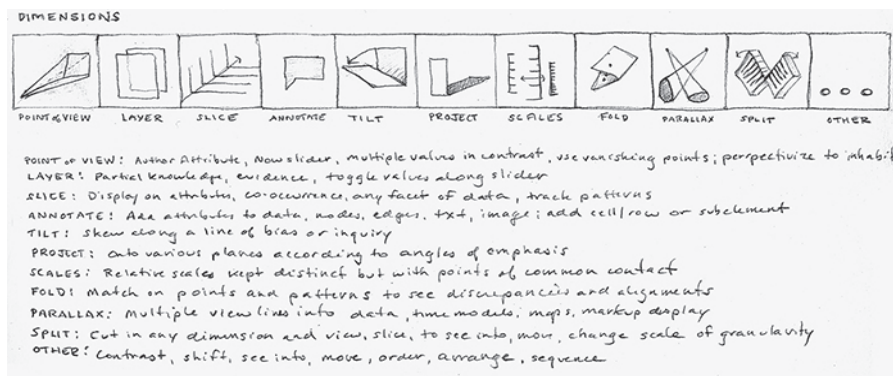 DIMENSIONS
POINT of VIEW LAYER SLICE ANNOTATE TILT PROJECT SCALES FOLD PARALLAX SPLIT OTHER
POINT of VIEW: Author Attribute, Now slider, multiple values in contrast, use vanishing points; perspectivize to inhabit
LAYER: Partial knowledge, evidence, toggle values along slider
SLICE: Display on attributes, co-occurrence, any facet of data, track patterns
ANNOTATE: Add attributes to data, nodes, edges, txt, image; add cell/row or subelement
TILT: Skew along a line of bias or inquiry
PROJECT: Onto various planes according to angles of emphasis
SCALES: Relative scales kept distinct but with points of common contact
FOLD: Match on points and patterns to see discrepancies and alignments
PARALLAX: Multiple view lines into data, time models, maps, markup display
SPLIT: Cut in any dimension and view, slice, to see into, move, change scale of granularity
OTHER: Contrast, shift, see into, move, order, arrange, sequence